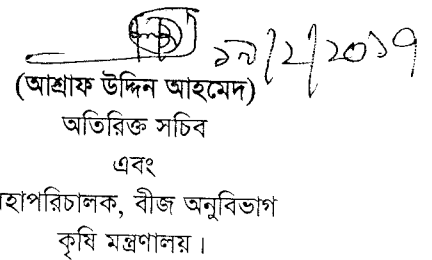 (আশ্রাফ উদ্দিন আহমেদ)
অতিরিক্ত সচিব
এবং
হাপরিচালক, বীজ অনুবিভাগ
কৃষি মন্ত্রণালয় ।